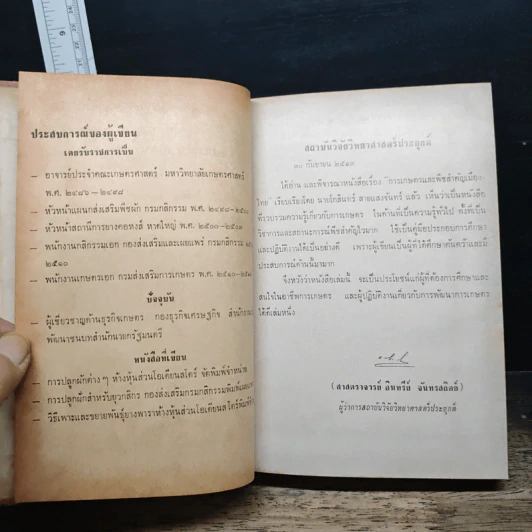 6
ประสบการณ์ของผู้เขียน
เคยรับราชการเป็น
– อาจารย์ประจำคณะเกษตรศาสตร์ มหาวิทยาลัยเกษตรศาสตร์
พ.ศ. ๒๔๘๖ – ๒๔๙๘
– หัวหน้าแผนกส่งเสริมพืชผัก กรมกสิกรรม พ.ศ. ๒๔๙๘–๒๕๐๐
– หัวหน้าสถานีการยางคอหงส์ หาดใหญ่ พ.ศ. ๒๕๐๐–๒๕๐๓
– พนักงานกสิกรรมเอก กองส่งเสริมและเผยแพร่ กรมกสิกรรม
๒๕๑๐
– พนักงานเกษตรเอก กรมส่งเสริมการเกษตร พ.ศ. ๒๕๑๐–
ปัจจุบัน
– ผู้เชี่ยวชาญด้านธุรกิจเกษตร กองธุรกิจเศรษฐกิจ สำนักงาน
พัฒนาชนบทสำนักนายกรัฐมนตรี
หนังสือที่เขียน
– การปลูกผักต่าง ๆ ห้างหุ้นส่วนโอเดียนสโตร์ จัดพิมพ์จำหน่าย
– การปลูกผักสำหรับยุวกสิกร กองส่งเสริมกรมกสิกรรมพิมพ์
– วิธีเพาะและขยายพันธุ์ยางพาราห้างหุ้นส่วนโอเดียนสโตร์พิมพ์
สถาบันวิจัยวิทยาศาสตร์ประยุกต์
กันยายน ๒๕๑๓
ได้อ่าน และพิจารณาหนังสือเรื่อง "การเกษตรและพืชสำคัญเมือง-
ไทย เรียบเรียงโดย นายโกสินทร์ สายแสงจันทร์ แล้ว เห็นว่าเป็นหนังสือ
ที่รวบรวมความรู้เกี่ยวกับการเกษตร ในด้านที่เป็นความรู้ทั่วไป ทั้งที่เป็น
วิชาการและสถานะการณ์พืชสำคัญไว้มาก ใช้เป็นคู่มือประกอบการศึกษา
และปฏิบัติงานได้เป็นอย่างดี เพราะผู้เขียนเป็นผู้ที่ได้ศึกษาค้นคว้าและมี
ประสบการณ์ด้านนี้มามาก
จึงหวังว่าหนังสือเล่มนี้ จะเป็นประโยชน์แก่ผู้ที่ต้องการศึกษาและ
สนใจในอาชีพการเกษตร และผู้ปฏิบัติงานเกี่ยวกับการพัฒนาการเกษตร
ได้ดีเล่มหนึ่ง
(ศาสตราจารย์ อินทรีย์ จันทรสถิตย์)
ผู้ว่าการสถาบันวิจัยวิทยาศาสตร์ประยุกต์